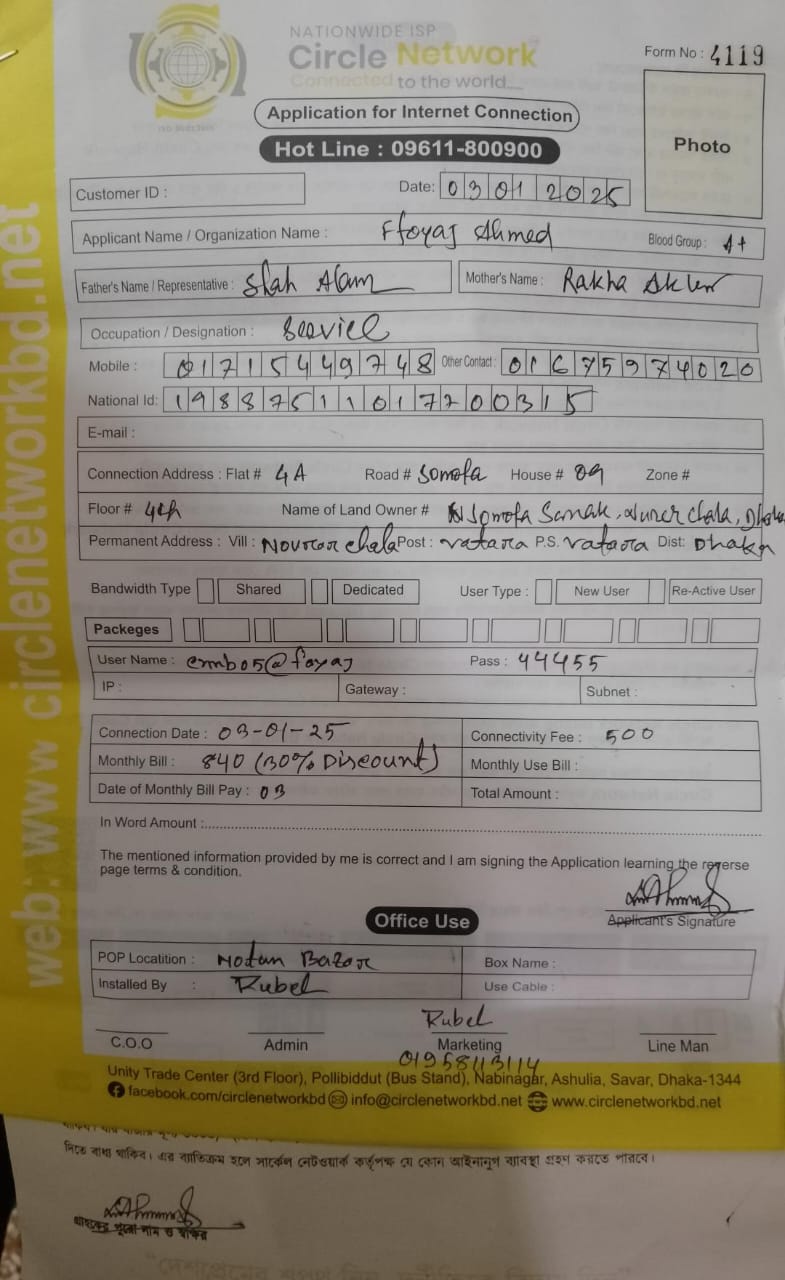 NATIONWIDE ISP
Circle Network
Connected to the world....
Form No : 4119
Application for Internet Connection
Hot Line : 09611-800900
Photo
Customer ID :
Date: 03 01 2025
Applicant Name / Organization Name : Ffoyaj Ahmed Blood Group : A+
Father's Name / Representative : Shah Alam Mother's Name : Rakha Akter
Occupation / Designation :
Mobile : 01715449748 Other Contact : 01675974020
National Id: 19887511017700315
E-mail :
Connection Address : Flat # 4A Road # Somofa House # 09 Zone #
Floor # 4th Name of Land Owner # Dhaka
Permanent Address : Vill : Nourer chala Post : vatara P.S. vatara Dist: Dhaka
Bandwidth Type Shared Dedicated User Type : New User Re-Active User
Packeges
User Name : cnnb05@foyaj Pass : 44455
IP : Gateway : Subnet :
Connection Date : 03-01-25 Connectivity Fee : 500
Monthly Bill : 840 (30% Discount) Monthly Use Bill :
Date of Monthly Bill Pay : 03 Total Amount :
In Word Amount :
The mentioned information provided by me is correct and I am signing the Application learning the reverse
page terms & condition.
Applicant's Signature
Office Use
POP Locatition : Notun Bazar Box Name :
Installed By : Rubel Use Cable :
Rubel
C.O.O Admin Marketing Line Man
01958113114
Unity Trade Center (3rd Floor), Pollibiddut (Bus Stand), Nabinagar, Ashulia, Savar, Dhaka-1344
facebook.com/circlenetworkbd info@circlenetworkbd.net www.circlenetworkbd.net
web: www.circlenetworkbd.net
দিতে বাধ্য থাকিব। এর ব্যতিক্রম হলে সার্কেল নেটওয়ার্ক কর্তৃপক্ষ যে কোন আইনানুগ ব্যবস্থা গ্রহণ করতে পারবে।